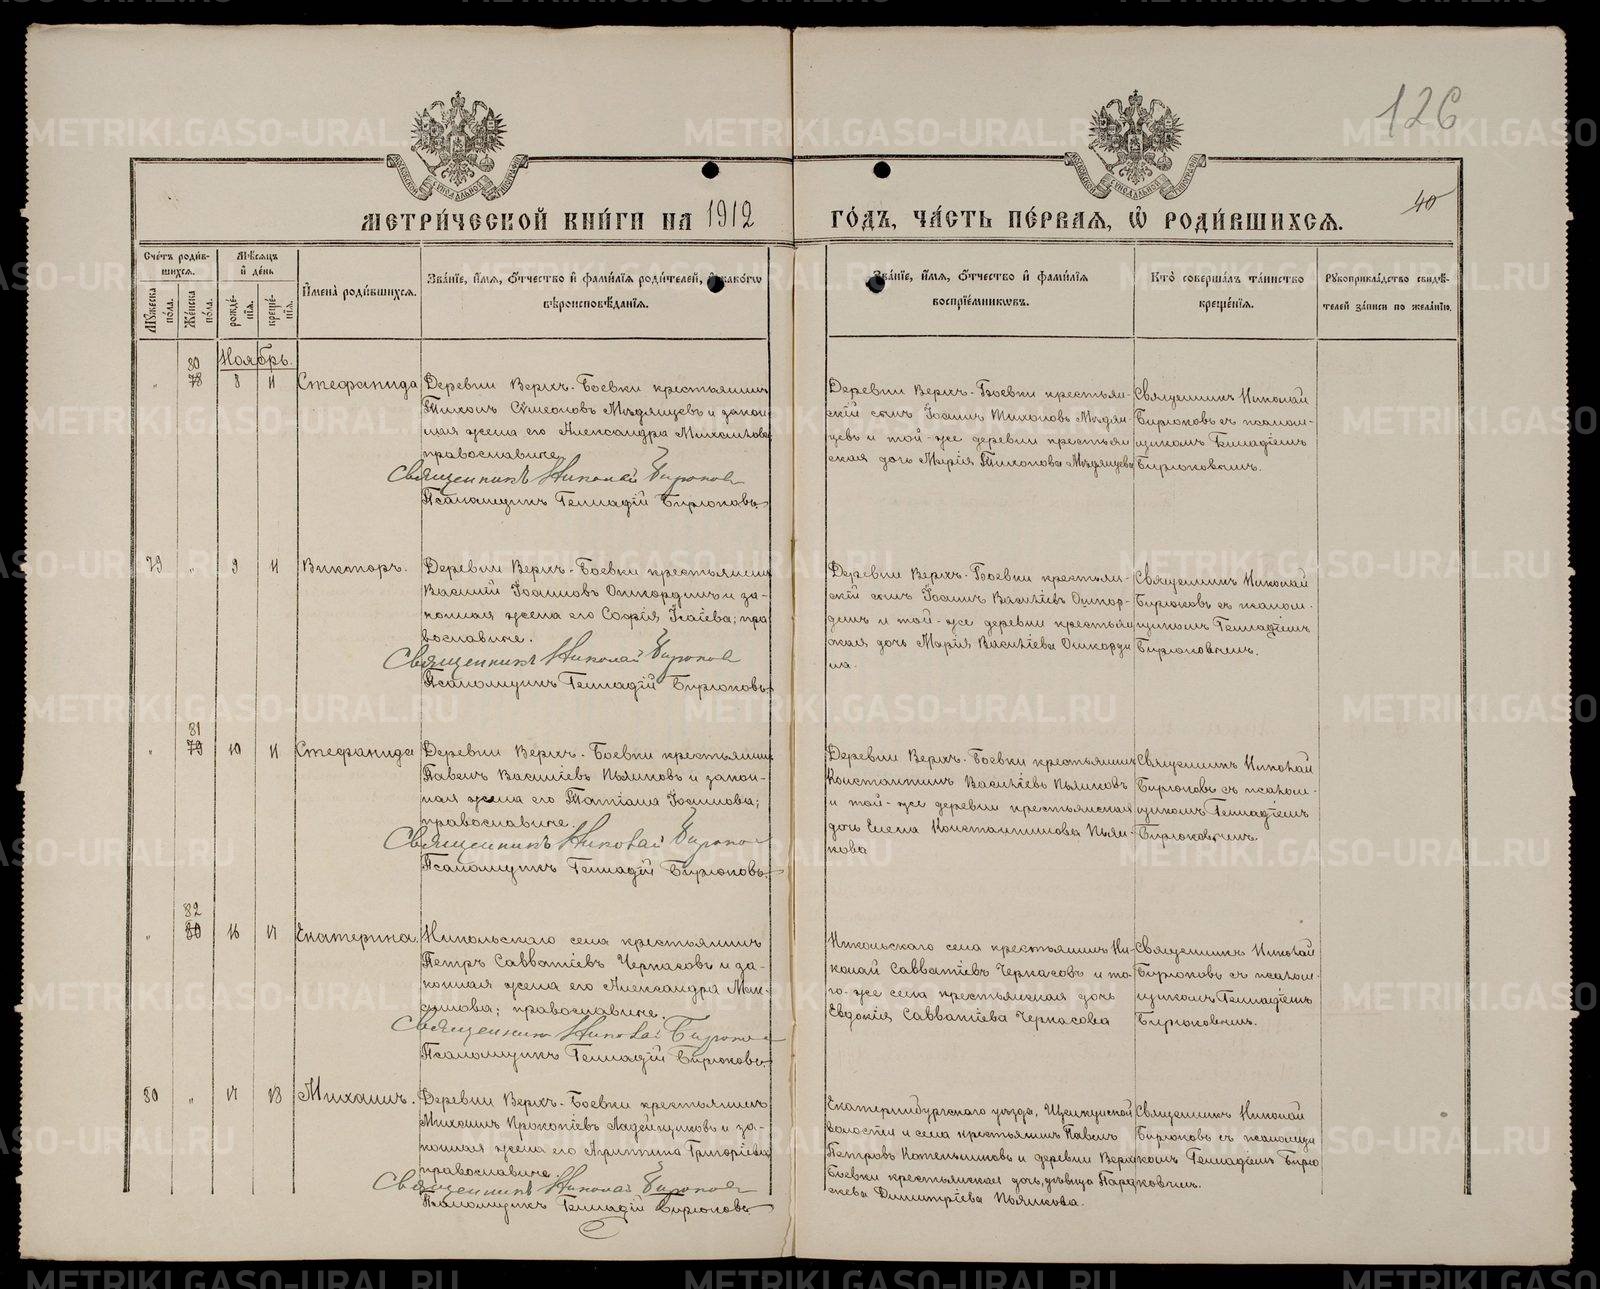 126
40
МЕТРИ́ЧЕСКОЙ КНИ́ГИ НА 1912 ГО́ДЪ, ЧА́СТЬ ПЕ́РВАЯ, Ѡ РОДИ́ВШИХСЯ.
Сче́тъ роди́вшихся.
Мѣ́сяцъ и́ де́нь
Му́жеска по́ла.
Же́нска по́ла.
рожде́нїя.
креще́нїя.
И҆мена̀ роди́вшихся.
Зва́нїе, и҆́мя, ѻ҆́тчество и҆ фами́лїя роди́телей, и҆ како́гѡ
вѣроисповѣ́данїя.
Зва́нїе, и҆́мя, ѻ҆́тчество и҆ фами́лїя
воспрїе́мникѡвъ.
Кто̀ соверша́лъ та́инство
креще́нїя.
Рꙋкоприкла́дство свидѣ́-
телей за́писи по жела́нїю.
Ноябрь.
80
" 78 8 11 Стефанида
Деревни Верхъ-Боевки крестьянинъ
Тихонъ Сѵмеоновъ Медянцевъ и закон-
ная жена его Александра Михайлова
православные.
Священникъ Николай Бирюковъ
Псаломщикъ Геннадій Бирюковъ.
Деревни Верхъ-Боевки крестьян-
скій сынъ Іоаннъ Тихоновъ Медян-
цевъ и той-же деревни крестьян
ская дочь Марія Тихонова Медянцева
Священникъ Николай
Бирюковъ съ псалом-
щикомъ Геннадіемъ
Бирюковымъ.
79 " 9 11 Викторъ.
Деревни Верхъ-Боевки крестьянинъ
Василій Іоанновъ Ошкординъ и за-
конная жена его Софія Исаіева; пра
вославные.
Священникъ Николай Бирюковъ
Псаломщикъ Геннадій Бирюковъ.
Деревни Верхъ-Боевки крестьян-
скій сынъ Іоаннъ Васильевъ Ошкор-
динъ и той-же деревни крестьян
ская дочь Марія Васильева Ошкорди
на.
Священникъ Николай
Бирюковъ съ псалом-
щикомъ Геннадіемъ
Бирюковымъ.
81
" 79 10 11 Стефанида
Деревни Верхъ-Боевки крестьянинъ
Павелъ Василіевъ Пьянковъ и закон-
ная жена его Татіана Іоаннова;
православные.
Священникъ Николай Бирюковъ
Псаломщикъ Геннадій Бирюковъ.
Деревни Верхъ-Боевки крестьянинъ
Константинъ Васильевъ Пьянковъ
и той-же деревни крестьянская
дочь Елена Константинова Пьян-
кова
Священникъ Николай
Бирюковъ съ псалом-
щикомъ Геннадіемъ
Бирюковымъ.
82
" 80 16 17 Екатерина.
Никольскаго села крестьянинъ
Петръ Савватіевъ Черкасовъ и за-
конная жена его Александра Мак-
симова; православные.
Священникъ Николай Бирюковъ
Псаломщикъ Геннадій Бирюковъ.
Никольскаго села крестьянинъ Ни-
колай Савватіевъ Черкасовъ и то-
го-же села крестьянская дочь
Евдокія Савватіева Черкасова
Священникъ Николай
Бирюковъ съ псалом-
щикомъ Геннадіемъ
Бирюковымъ.
80 " 17 18 Михаилъ.
Деревни Верхъ-Боевки крестьянинъ
Михаилъ Прокопіевъ Ладейщиковъ и за-
конная жена его Агриппина Григоріева
православные.
Священникъ Николай Бирюковъ
Псаломщикъ Геннадій Бирюковъ
Екатеринбургскаго уѣзда,
волости и села крестьянинъ Павелъ
Петровъ Котельниковъ и деревни Верхъ
Боевки крестьянская дочь, дѣвица Парас
кева Димитріева Пьянкова.
Священникъ Николай
Бирюковъ съ псаломщи
комъ Геннадіемъ Бирю
ковымъ.
METRIKI.GASO-URAL.RU